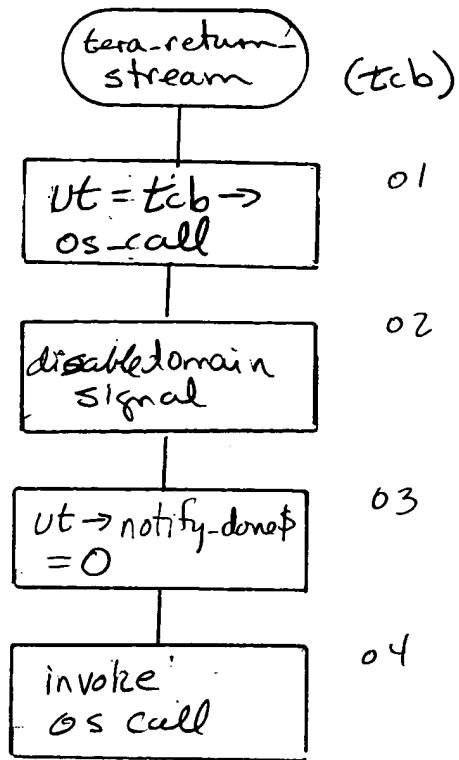 tera-return-
stream
(tcb)
ut = tcb →
os_call
01
disable domain
signal
02
ut → notify_done$
= 0
03
invoke
os call
04